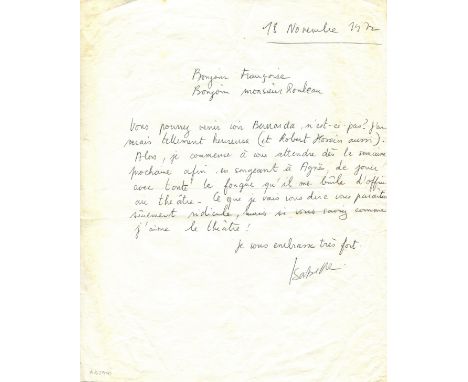 18 Novembre 1972
Bonjour Françoise
Bonjour monsieur Rouleau
Vous pourrez venir voir Bernarda, n'est-ce pas? J'en
serais tellement heureuse (et Robert Hossein aussi).
Alors, je commence à vous attendre dès la semaine
prochaine afin, en songeant à Agnès, de jouer
avec toute la fougue qu'il me brûle d'offrir
au théâtre. Ce que je vais vous dire vous paraîtra
sûrement ridicule, mais si vous saviez comme
j'aime le théâtre!
Je vous embrasse très fort.
Isabelle